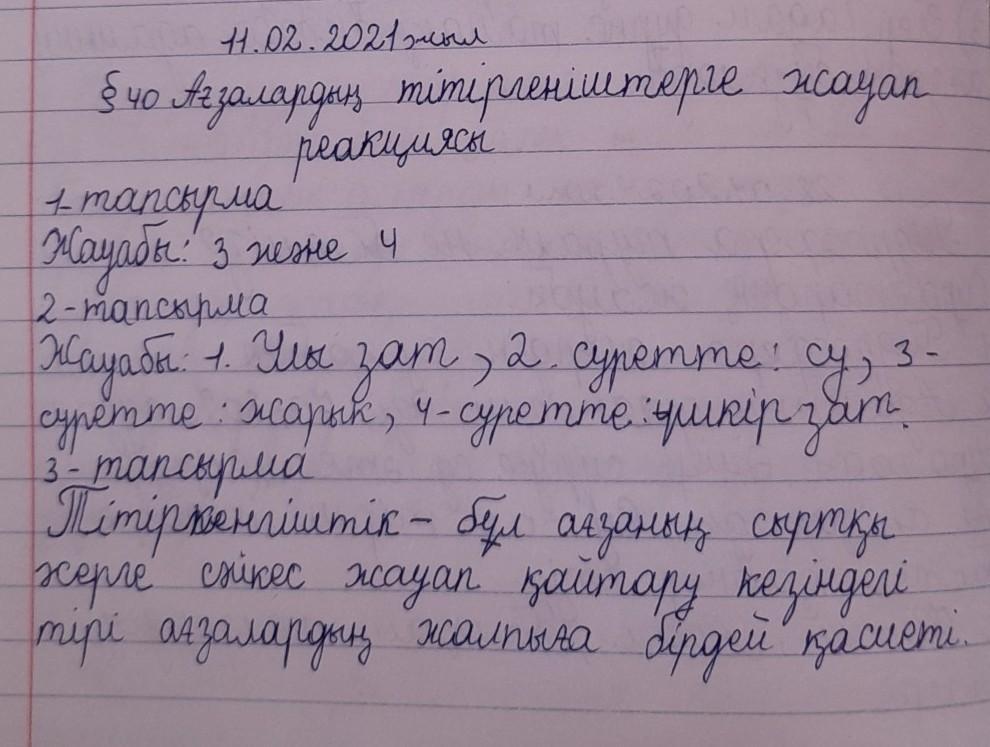 11.02.2021 жыл
§ 40 Ағзалардың тітіргеніштерге жауап
реакциясы
1-тапсырма
Жауабы: 3 және 4
2-тапсырма
Жауабы: 1. Улы зат, 2. суретте: су, 3-
суретте: жарық, 4-суретте: үшкір зат.
3-тапсырма
Тітіркенгіштік - бұл ағзаның сыртқы
жерге сәйкес жауап қайтару кезіндегі
тірі ағзалардың жалпыға бірдей қасиеті.